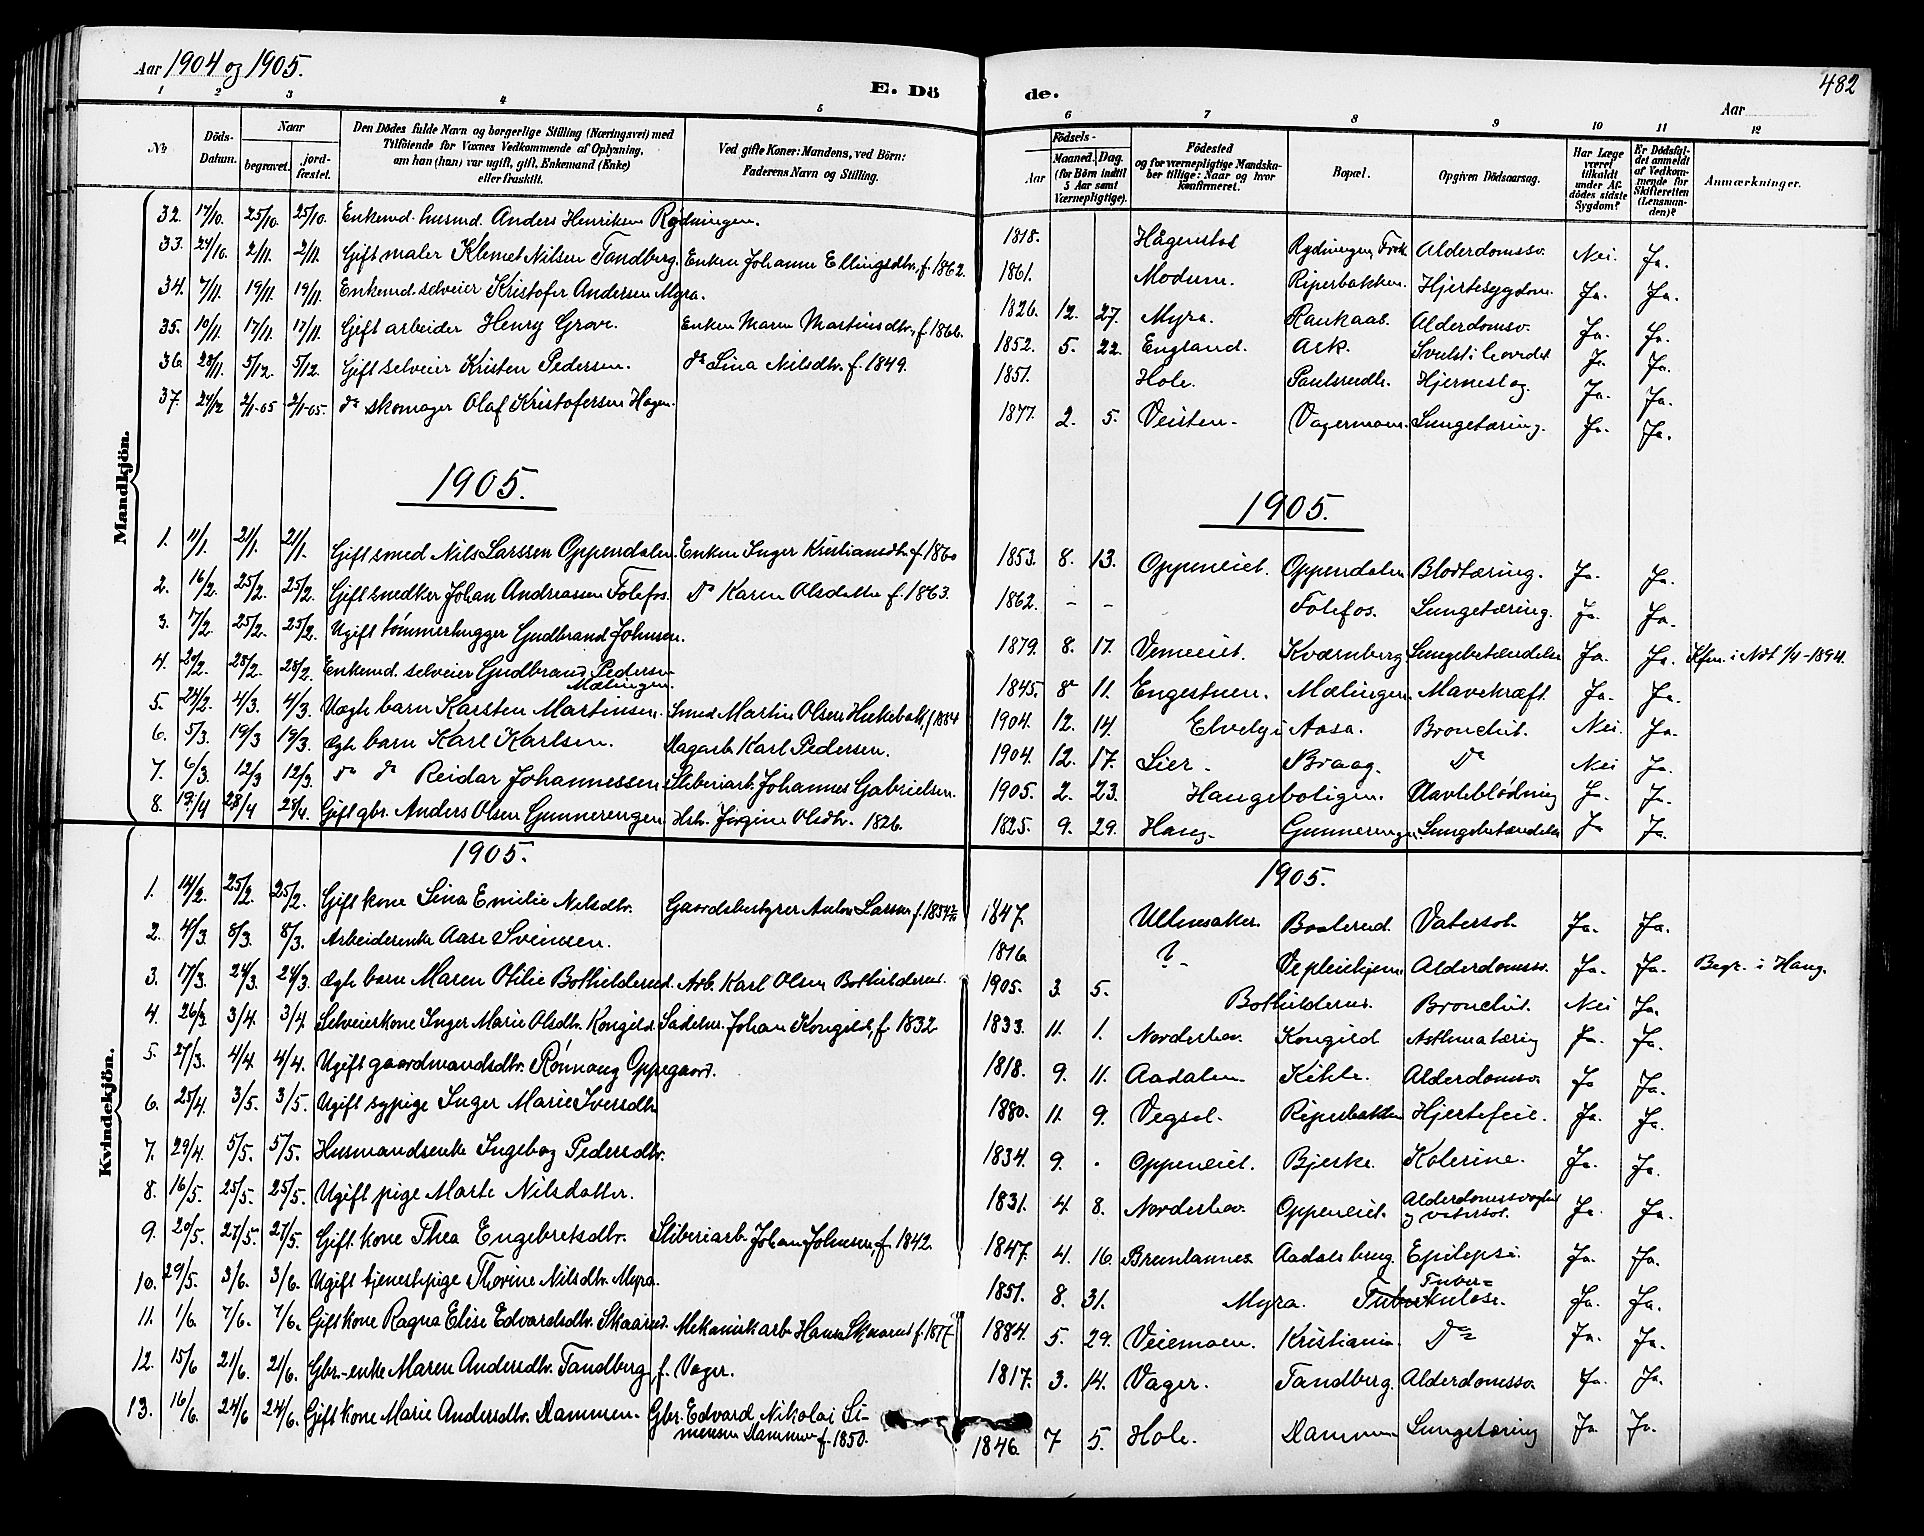 Aar 1904 og 1905.
E. Döde.
482
Aar
1 2 3 4 5 6 7 8 9 10 11 12
No
Döds-Datum.
Naar
begravet.
jordfæstet.
Den Dödes fulde Navn og borgerlige Stilling (Næringsvei) med
Tilföiende for Voxnes Vedkommende af Oplysning,
om han (hun) var ugift, gift, Enkemand (Enke)
eller fraskilt.
Ved gifte Koner: Mandens, ved Börn:
Faderens Navn og Stilling.
Födsels-
Aar
Maaned. Dag.
(for Börn indtil
5 Aar samt
Værnepligtige).
Födested
og for værnepligtige Mandska-
ber tillige: Naar og hvor
konfirmeret.
Bopæl.
Opgiven Dödsaarsag.
Har Læge
været
tilkaldt
under Af-
dödes sidste
Sygdom?
Er Dödsfal-
det anmeldt
af Vedkom-
mende for
Skifteretten
(Lensman-
den)?
Anmærkninger.
Mandkjön.
32. 17/10. 25/10. 25/10. Enkemd. husmd. Anders Henriksen Rydningen. 1818. Hågenstad Rydningen, Alderdomssv. Nei. Ja.
33. 24/10. 2/11. 2/11. Gift maler Klemet Nilsen Tandberg. Enken Johanne Ellingsdtr. f. 1862. 1861. Modum. Riperbakken. Hjertesygdom. Ja. Ja.
34. 7/11. 19/11. 19/11. Enkemd. selveier Kristofer Andersen Myra. 1826. 12. 27. Myra. Alderdomssv. Ja. Ja.
35. 10/11. 17/11. 17/11. Gift arbeider Henry Grove. Enken Maren Martinsdtr., f. 1866. 1852. 5. 22. England. Ask. Svulst i hovedet Ja. Ja.
36. 28/11. 5/12. 5/12. Gift selveier Kristen Pedersen. do Lina Nilsdtr. f. 1849. 1851. Hole. Hjerneslag. Ja. Ja.
37. 24/12. 2/1-05 2/1-05. do skomager Olaf Kristofersen Hagen. 1877. 2. 5. Veisten. Vagermoen. Lungetæring. Ja. Ja.
1905. 1905.
1. 11/1. 21/1. 21/1. Gift smed Nils Larssen Oppendalen. Enken Inger Kristiansdtr. f. 1860 1853. 8. 13. Oppeneiet. Oppendalen Blodtæring. Ja. Ja.
2. 16/2. 25/2. 25/2. Gift snedker Johan Andreassen Follefos. Do Karen Olsdatter f. 1863. 1862. - - Follefos. Lungetæring. Ja. Ja.
3. 7/2. 25/2. 25/2. Ugift tömmerhugger Gudbrand Johnsen. 1879. 8. 17. Vemeeiet. Kværnberg Lungebetændelse Ja. Ja. Kfm. i Ndt 1/4-1894.
4. 20/2. 28/2. 28/2. Enkemd. selveier Gudbrand Pedersen
Mælingen. 1845. 8 11. Engestuen. Mælingen. Mavekræft. Ja. Ja.
5. 24/2. 4/3. 4/3. Uægte barn Karsten Martinsen. Smed Martin Olsen f. 1884 1904. 12. 14. Elvely i Aasa. Bronchit. Nei. Ja.
6. 5/3. 19/3 19/3. Ægte barn Karl Karlsen. Magarb. Karl Pedersen. 1904. 12. 17. Lier. Braag. Do Nei Ja.
7. 6/3. 12/3 12/3. do do Reidar Johannessen Sliberiarb. Johannes Gabrielsen. 1905. 2. 23. Haugeboligen. Navleblödning Ja. Ja.
8. 19/4 28/4 28/4. Gift gbr. Anders Olsen Gunnerengen. Hstr. Jörgine Olsdtr. 1826. 1825. 9. 29. Haug. Gunnerengen. Lungebetændelse Ja Ja.
Kvindekjön.
1905. 1905.
1. 14/2. 25/2. 25/2. Gift kone Lina Emilie Nilsdtr. Gaardsbestyrer Anton Larsen f. 1854 1847. Ullensaker. Bolerud. Vatersot. Ja. Ja.
2. 4/3. 8/3. 8/3. Arbeiderenke Aase Svensen. 1816. ? - Veipleiehjem Alderdomssv. Ja. Ja. Begr. i Haug.
3. 17/3. 24/3. 24/3. Ægte barn Maren Otilie Bothilderud. Arb. Karl Olsen Bothilderud. 1905. 3. 5. Bothilderud. Bronchit. Nei Ja.
4. 26/3 3/4 3/4. Selveierkone Inger Marie Olsdtr. Kongild. Sadelm. Johan Kongild, f. 1832. 1833. 11. 1. Norderhov. Kongild Asthmatæring Ja. Ja.
5. 27/3. 4/4 4/4. Ugift gaardmandsdtr. Rönnaug Oppegaard. 1818. 9. 11. Aadalen. Kihle. Alderdomssv. Ja Ja.
6. 25/4. 3/5. 3/5. Ugift sypige Inger Marie Iversdtr. 1880. 11. 9. Vegsal. Riperbakken Hjertefeil. Ja. Ja.
7. 29/4. 5/5. 5/5. Husmandsenke Ingebog Pedersdtr. 1834. 9. . Oppeneiet. Bjerke. Kolerine. Ja. Ja.
8. 16/5. 25/5. 25/5. Ugift pige Marte Nilsdatter. 1831. 4. 8. Norderhov. Oppeneiet. Alderdomssvaghed
og vatersot. Ja. Ja.
9. 20/5. 27/5. 27/5. Gift kone Thea Engebretsdtr. Sliberiarb. Johan Johnsen, f. 1842. 1847. 4. 16. Brunlannes Aadalsbrug. Epilepsi. Ja. Ja.
10. 29/5. 3/6. 3/6. Ugift tjenestepige Thorine Nilsdtr. Myra. 1851. 8. 31. Myra. Tuber=
kulose. Ja. Ja.
11. 1/6. 7/6. 7/6. Gift kone Ragna Elise Edvardsdtr. Skaarud. Mekaniskarb. Hans Skaarud f. 1877. 1884. 5. 29. Veiemoen. Kristiania Do Ja. Ja.
12. 15/6 21/6. 21/6. Gbr.-enke Maren Andersdtr. Tandberg, f. Vager. 1817. 3. 14. Vager. Tandberg. Alderdomssv. Ja. Ja.
13. 16/6. 24/6 24/6. Gift kone Marie Andersdtr. Dammen. Gbr. Edvard Nikolai Si-
mensen Dammen f. 1850. 1846. 7 5. Hole. Dammen Lungetæring Ja. Ja.